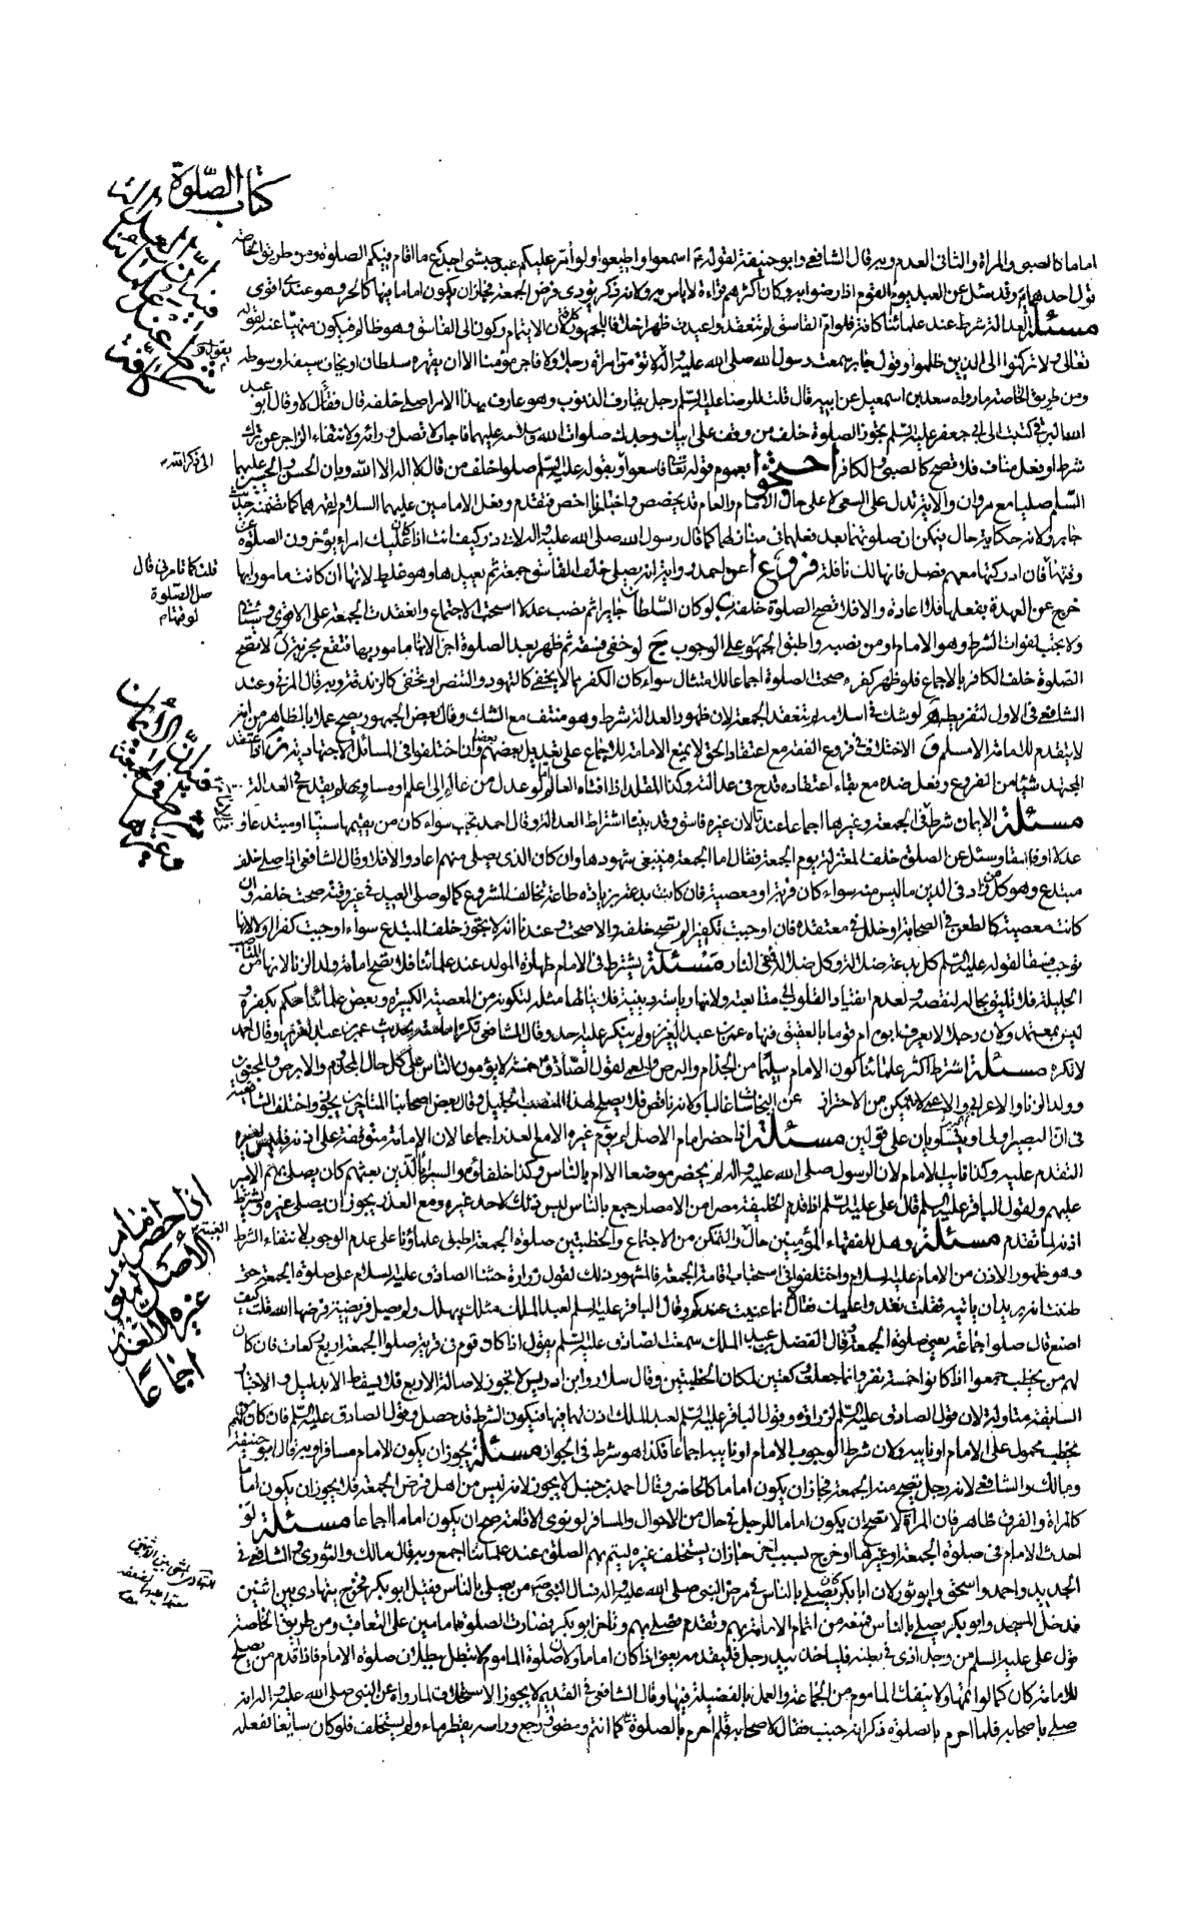 كتاب الصلوة
اماما كالصبى والمراة والثانى العدم وبه قال الشافعى وابو حنيفة لقوله اسمعوا واطيعوا ولو أمر عليكم عبد حبشى اجدع ما اقام فيكم الصلوة ومن طريق الخاصة
قول احدهما وقد سئل عن العبد يوم القوم اذا رضوا به وكان اكثرهم قراءة لا باس به ولانه ذكر يؤدى فرض الجمعة فجاز ان يكون اماما فيها كالحر وهو عندى اقوى
مسئلة العدالة شرط عند علمائنا كافة فلو ام الفاسق لم تنعقد واعيدت ظهرا خلافا للجمهور لان الايتمام ركون الى الفاسق وهو ظالم فيكون منهيا عنه لقوله
تعالى ولا تركنوا الى الذين ظلموا وقول جابر سمعت رسول الله صلى الله عليه واله لا تؤمن امراة رجلا ولا فاجر مؤمنا الا ان يقهره سلطان او يخاف سيفه او سوطه
ومن طريق الخاصة ما رواه سعد بن اسمعيل عن ابيه قال قلت للرضا عليه السلم رجل يقارف الذنوب وهو عارف بهذا الامر اصلى خلفه قال لا وقال ابو عبد
الله البرقى كتبت الى ابى جعفر عليه السلم يجوز الصلوة خلف من وقف على ابيك وجدك صلوات الله وسلامه عليهما فاجاب لا تصل وراءه ولانتفاء الزاجر عن ترك
شرط او فعل مناف فلا تصح كالصبى والكافر احتجوا بعموم قوله تعالى فاسعوا وبقوله عليه السلم صلوا خلف من قال لا اله الا الله وبان الحسن والحسين عليهما
السلم صليا مع مروان والاية تدل على السعى لا على حال الامام والعام قد يخصص واخبارنا اخص فتقدم وفعل الامامين عليهما السلام لقهرهما كما تضمنته حديث
جابر ولانه حكاية حال يمكن ان صلوتهما بعد فعلهما فى منازلهما كما قال رسول الله صلى الله عليه واله لابى ذر كيف انت اذا كان عليك امراء يؤخرون الصلوة عن
وقتها فان ادركتها معهم فصل فانها لك نافلة فروع ا عن احمد رواية انه يصلى خلف الفاسق جمعة ثم يعيدها وهو غلط لانها ان كانت مامورا بها
خرج عن العهدة بفعلها فلا اعادة والا فلا تصح الصلوة خلفه ب لو كان السلطان جايرا ثم نصب عدلا استحب الاجتماع وانعقدت الجمعة على الاقوى
ولا يجب لفوات الشرط وهو الامام او من نصبه واطبق الجمهور على الوجوب ج لو خفى فسقه ثم ظهر بعد الصلوة اجزا لانها مامور بها فتقع مجزية د لا تصح
الصلوة خلف الكافر بالاجماع فلو ظهر كفره صحت الصلوة اجماعا للامتثال سواء كان الكفر مما لا يخفى كالتهود والتنصر او يخفى كالزندقة وبه قال المزنى وعند
الشافعى فى الاول لتفريطه ه لو شك فى اسلامه لم تنعقد الجمعة لان ظهور العدالة شرط وهو منتف مع الشك وقال بعض الجمهور يصح عملا بالظاهر من انه
لا يتقدم للامامة الا مسلم و الاختلاف فى فروع الفقه مع اعتقاد الحق لا يمنع الامامة للاجماع على تعديل بعضهم بعضا وان اختلفوا فى المسائل الاجتهادية ز اذا اعتقد
المجتهد شيئا من الفروع وفعل ضده مع بقاء اعتقاده قدح فى عدالته وكذا المقلد اذا افتاه العالم اما لو عدل من عالم الى اعلم او مساو لم يقدح فى العدالة
مسئلة الايمان شرط فى الجمعة وغيرها اجماعا عندنا لان غيره فاسق وقد بينا اشتراط العدالة وقال احمد تجب سواء كان من يقيمها سنيا او مبتدعا او
عدلا او فاسقا وسئل عن الصلوة خلف المعتزلة يوم الجمعة فقال اما الجمعة فينبغى شهودها وان كان الذى يصلى منهم اعاد والا فلا وقال الشافعى اذا صلى خلف
مبتدع وهو كل من زاد فى الدين ما ليس منه سواء كان قربة او معصية فان كانت بدعته بزيادة طاعة تخالف المشروع كما لو صلى العيد فى غير وقته صحت خلفه وان
كانت معصية كالطعن فى الصحابة او خلل فى معتقده فان اوجبت تكفيرا لم تصح خلفه والا صحت وعندنا انه لا يجوز خلف المبتدع سواء اوجبت كفرا او لا لانها
توجب فسقا لقوله عليه السلم كل بدعة ضلالة وكل ضلالة فى النار مسئلة يشترط فى الامام طهارة المولد عند علمائنا فلا تصح امامة ولد الزنا لانها من المناصب
الجليلة فلا تليق بحاله لنقصه ولعدم انقياد القلوب الى متابعته ولانها رياسة دينية فلا ينالها مثله لتكونه من المعصية الكبيرة وبعض علمائنا حكم بكفره و
ليس بمعتمد ولان رجلا لا يعرف ابوه ام قوما بالعقيق فنهاه عمر بن عبد العزيز ولم ينكر عليه احد وقال الشافعى تكره امامته لحديث عمر بن عبد العزيز وقال احمد
لا تكره مسئلة اشترط اكثر علمائنا كون الامام سليما من الجذام والبرص والعمى لقول الصادق خمسة لا يؤمون الناس على كل حال المجذوم والابرص والمجنون
وولد الزنا والاعرابى والاعمى لا يتمكن من الاحتراز عن النجاسات غالبا ولانه ناقص فلا يصلح لهذا المنصب الجليل وقال بعض اصحابنا المتاخرين يجوز واختلف الشافعية
فى ان البصير اولى او يتساويان على قولين مسئلة اذا حضر امام الاصل لم يؤم غيره الا مع العذر اجماعا لان الامامة متوقفة على اذنه فليس لغيره
التقدم عليه وكذا نايب الامام لان الرسول صلى الله عليه واله لم يحضر موضعا الا ام بالناس وكذا خلفاؤه والسرايا الذين بعثهم كان يصلى بهم الامير
عليهم ولقول الباقر عليه السلم قال على عليه السلم اذا قدم الخليفة مصرا من الامصار جمع بالناس ليس ذلك لاحد غيره ومع العذر يجوز ان يصلى غيره بشرط
اذنه لما تقدم مسئلة وهل للفقهاء المؤمنين حال الغيبة والتمكن من الاجتماع والخطبتين صلوة الجمعة اطبق علماؤنا على عدم الوجوب لانتفاء الشرط
وهو ظهور الاذن من الامام عليه السلام واختلفوا فى استحباب اقامة الجمعة فالمشهور ذلك لقول زرارة حثنا الصادق عليه السلام على صلوة الجمعة حتى
ظننت انه يريد ان ناتيه فقلت نغدوا عليك فقال لا انما عنيت عندكم وقال الباقر عليه السلم لعبد الملك مثلك يهلك ولم يصل فريضة فرضها الله قلت كيف
اصنع قال صلوا جماعة يعنى صلوة الجمعة وقال الفضل بن عبد الملك سمعت الصادق عليه السلم يقول اذا كان قوم فى قرية صلوا الجمعة اربع ركعات فان كان
لهم من يخطب جمعوا اذا كانوا خمسة نفر وانما جعلت ركعتين لمكان الخطبتين وقال سلار وابن ادريس لا يجوز لاصالة الاربع فلا يسقط الا بدليل والاخبار
السابقة متاولة لان قول الصادق عليه السلم لزرارة وقول الباقر عليه السلم لعبد الملك اذن لهما فيها فيكون الشرط قد حصل وقول الصادق عليه السلم فان كان لهم من
يخطب محمول على الامام او نايبه ولان شرط الوجوب الامام او نايبه اجماعا فكذا هو شرط فى الجواز مسئلة يجوز ان يكون الامام مسافرا وبه قال ابو حنيفة
ومالك والشافعى لانه رجل تصح منه الجمعة فجاز ان يكون اماما كالحاضر وقال احمد بن حنبل لا يجوز لانه ليس من اهل فرض الجمعة فلا يجوز ان يكون اماما
كالمراة والفرق ظاهر فان المراة لا تصح ان يكون اماما للرجل فى حال من الاحوال والمسافر لو نوى الاقامة صح ان يكون اماما اجماعا مسئلة لو
احدث الامام فى صلوة الجمعة او غيرها او خرج بسبب اخر جاز ان يستخلف غيره ليتم بهم الصلوة عند علمائنا اجمع وبه قال مالك والثورى والشافعى فى
الجديد واحمد واسحق وابو ثور لان ابا بكر كان يصلى بالناس فى مرض النبى صلى الله عليه واله فسال النبى من يصلى بالناس فقيل ابو بكر فخرج يتهادى بين اثنين
فدخل المسجد وابو بكر يصلى بالناس فمنعه من اتمام الامامة بهم وتقدم فصلى بهم وتاخر ابو بكر فصارت الصلوة بامامين على التعاقب ومن طريق الخاصة
قول على عليه السلم من وجد اذى فى بطنه فلياخذ بيد رجل فليقدمه يعنى اذا كان اماما ولان صلوة الماموم لا تبطل ببطلان صلوة الامام فاذا قدم من يصلح
للامامة كان كما لو اتمها ولا ينفك الماموم من الجماعة والعمل بالفضيلة فيها وقال الشافعى فى القديم لا يجوز الاستخلاف لما رواه عن النبى صلى الله عليه واله انه
صلى باصحابه فلما احرم بالصلوة ذكر انه جنب فقال لاصحابه كما انتم ومضى ورجع وراسه يقطر ماء ولم يستخلف فلو كان سايغا لفعله
فى ان العدالة
شرط عند علمائنا كافة
الى ذكر الله
قلت كما تامرنى قال
صل الصلوة
لوقتها
فى ان الايمان
شرط فى الجمعة
وغيرها
اذا حضر امام
الاصل لم يؤم
غيره الا مع العذر
اجماعا